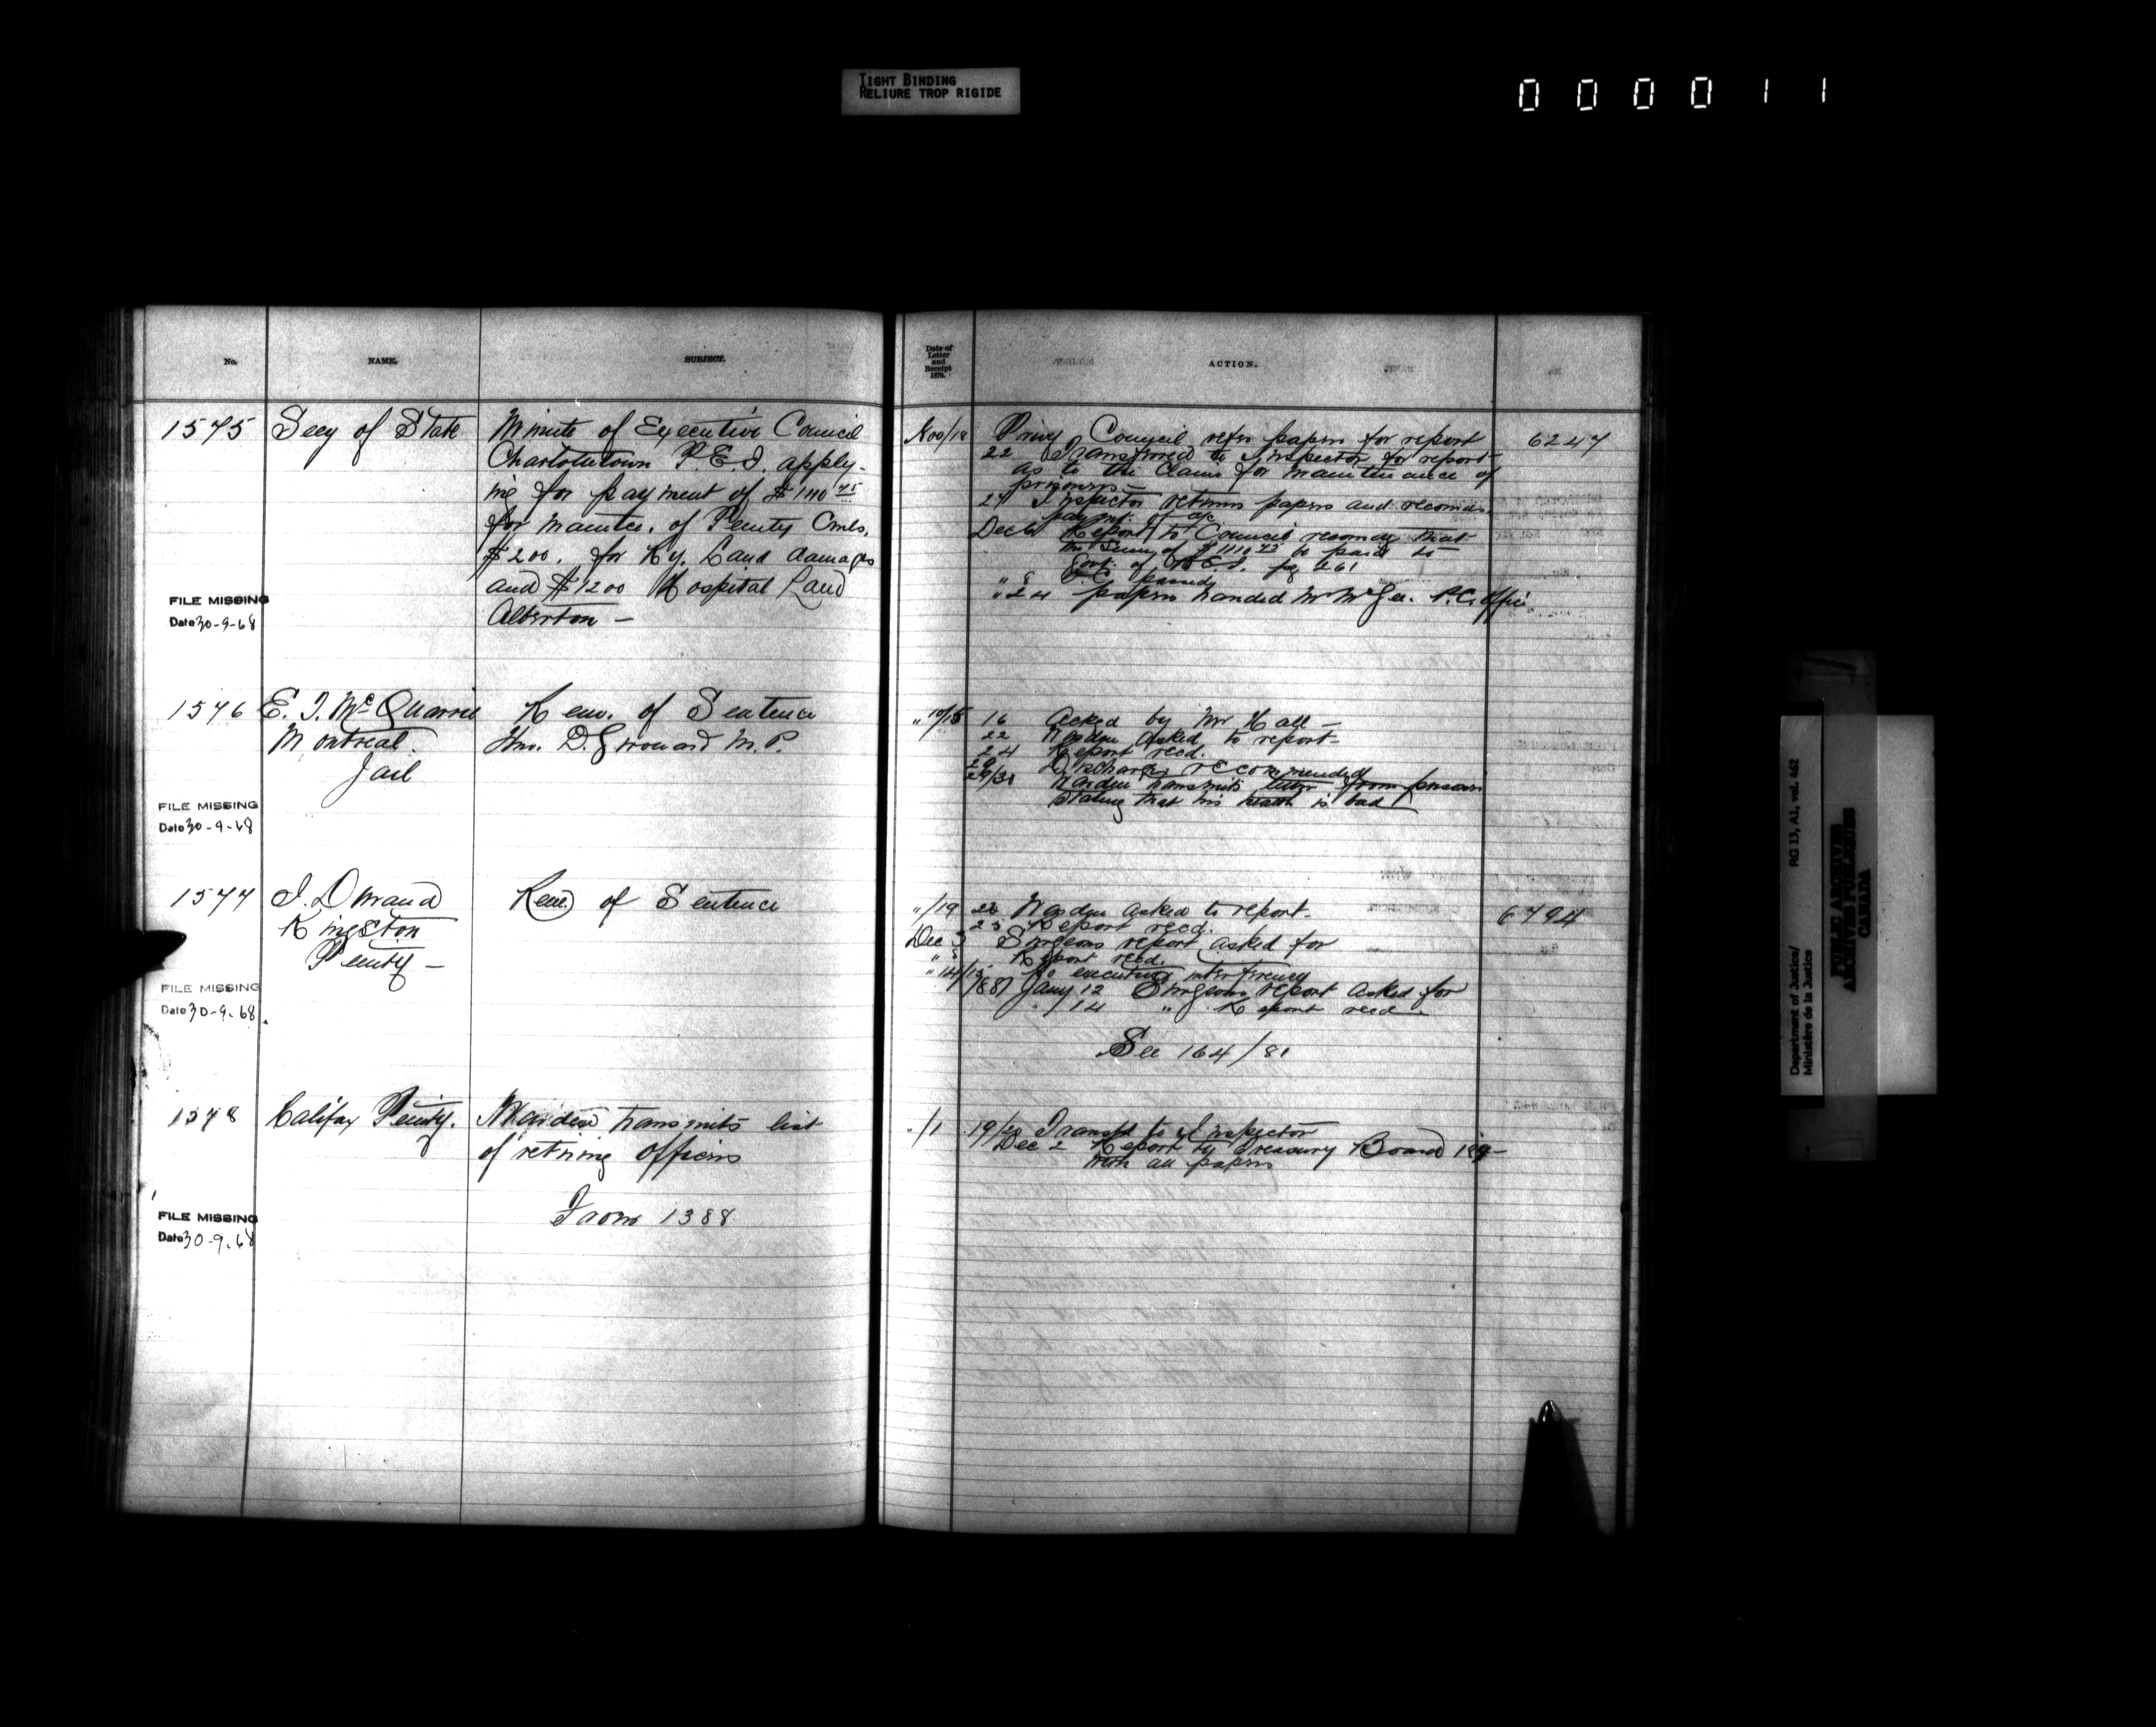 TIGHT BINDING
RELIURE TROP RIGIDE
000011
No. NAME. SUBJECT.
1575 Secy of State Minute of Executive Council
Charlottetown P.E.I. apply-
ing for payment of $1110 75
for maintce. of Penity Cnvls,
$200. for Ry. Land damages
and $1200 Hospital Land
Alberton —
FILE MISSING
Date 30-9-68
1576 E. I. McQuarrie Rem. of Sentence
Montreal Hon. D. Girouard M.P.
Jail
FILE MISSING
Date 30-9-68
1577 I. Durand Rem. of Sentence
Kingston
Penity —
FILE MISSING
Date 30-9-68
1578 Halifax Penity. Warden transmits list
of retiring Officers
From 1388
FILE MISSING
Date 30-9-68
Date of
Letter
and
Receipt
1879.
ACTION.
Nov/18 Privy Council refer papers for report 6247
22 Transferred to Inspector for report
as to the claim for maintenance of
prisoners —
Inspector returns papers and recomds
paymt. of
Dec 6 Report to Council recomdg that
the sum of $1110 75 be paid to
Govt. of P.E.I.
" 8 O.C. passed
" 24 papers handed Mr McGee. P.C. Office
" 16 Asked by Mr Hall —
22 Warden asked to report —
24 Report recd.
Discharge recommended
29/30 Warden transmits letter from prisoner
stating that his health is bad
"/19 22 Warden asked to report. 6794
25 Report recd.
Dec 3 Surgeons report asked for
" 5 Report recd.
" 14/15 No executive interferency
1881 Jany 12 Surgeons report asked for
" /14 " Report recd
See 164/81
"/1 19/20 Transfd to Inspector
Dec 2 Report to Treasury Board
with all papers
Department of Justice/ RG 13, A1, vol. 462
Ministère de la Justice
PUBLIC ARCHIVES
ARCHIVES PUBLIQUES
CANADA